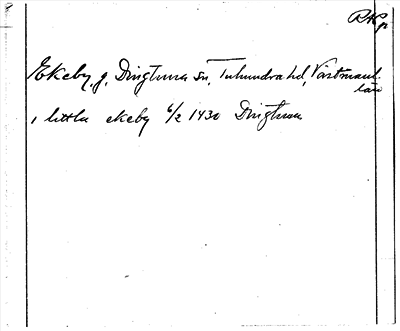 RAp
Ekeby, g, Dingtuna sn, Tuhundra hd, Västmanl.
län
, littla ekeby 6/2 1430 Dingtuna